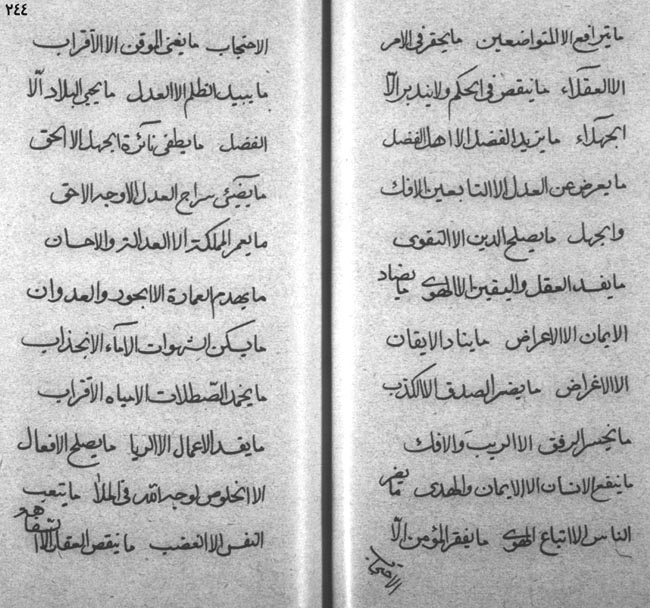 ٢٤٤
ما يترافع الا المتواضعين ما يحقر في الامر
الا العقلاء ما ينقص في الحكم ولا يندير الّا
الجهلاء ما يزيد الفضل الا اهل الفضل
ما يعرض عن العدل الا التابعين الافك
والجهل ما يصلح الدين الا التقوى
ما يفسد العقل واليقين الا الهوى ما يضاد
الايمان الا الاعراض ما يناد الايقان
الا الاغراض ما يضر الصدق الا الكذب
ما يخسر الرفق الا الريب والافك
ما ينفع الانسان الا الايمان والهدى ما يضر
الناس الا اتباع الهوى ما يفقر المؤمن الّا
الاحتجاب
الاحتجاب ما يغنى الموقن الا الاقراب
ما يبيد الظلم الا العدل ما يحيى البلاد الّا
الفضل ما يطفى نائرة الجهل الا الحق
ما يضيئى سراج العدل الا وجه الاحق
ما يعمر المملكة الا العدالة والاحسان
ما يهدم العمارة الا الجود والعدوان
ما يسكن الشهوات الا ماء الانجذاب
ما يخمد الصّطلات الا مياه الاقراب
ما يفسد الاعمال الا الريا ما يصلح الافعال
الا الخلوص لوجه الله في الملأ ما يتعب
النفس الا الغضب ما ينقص العقل الا